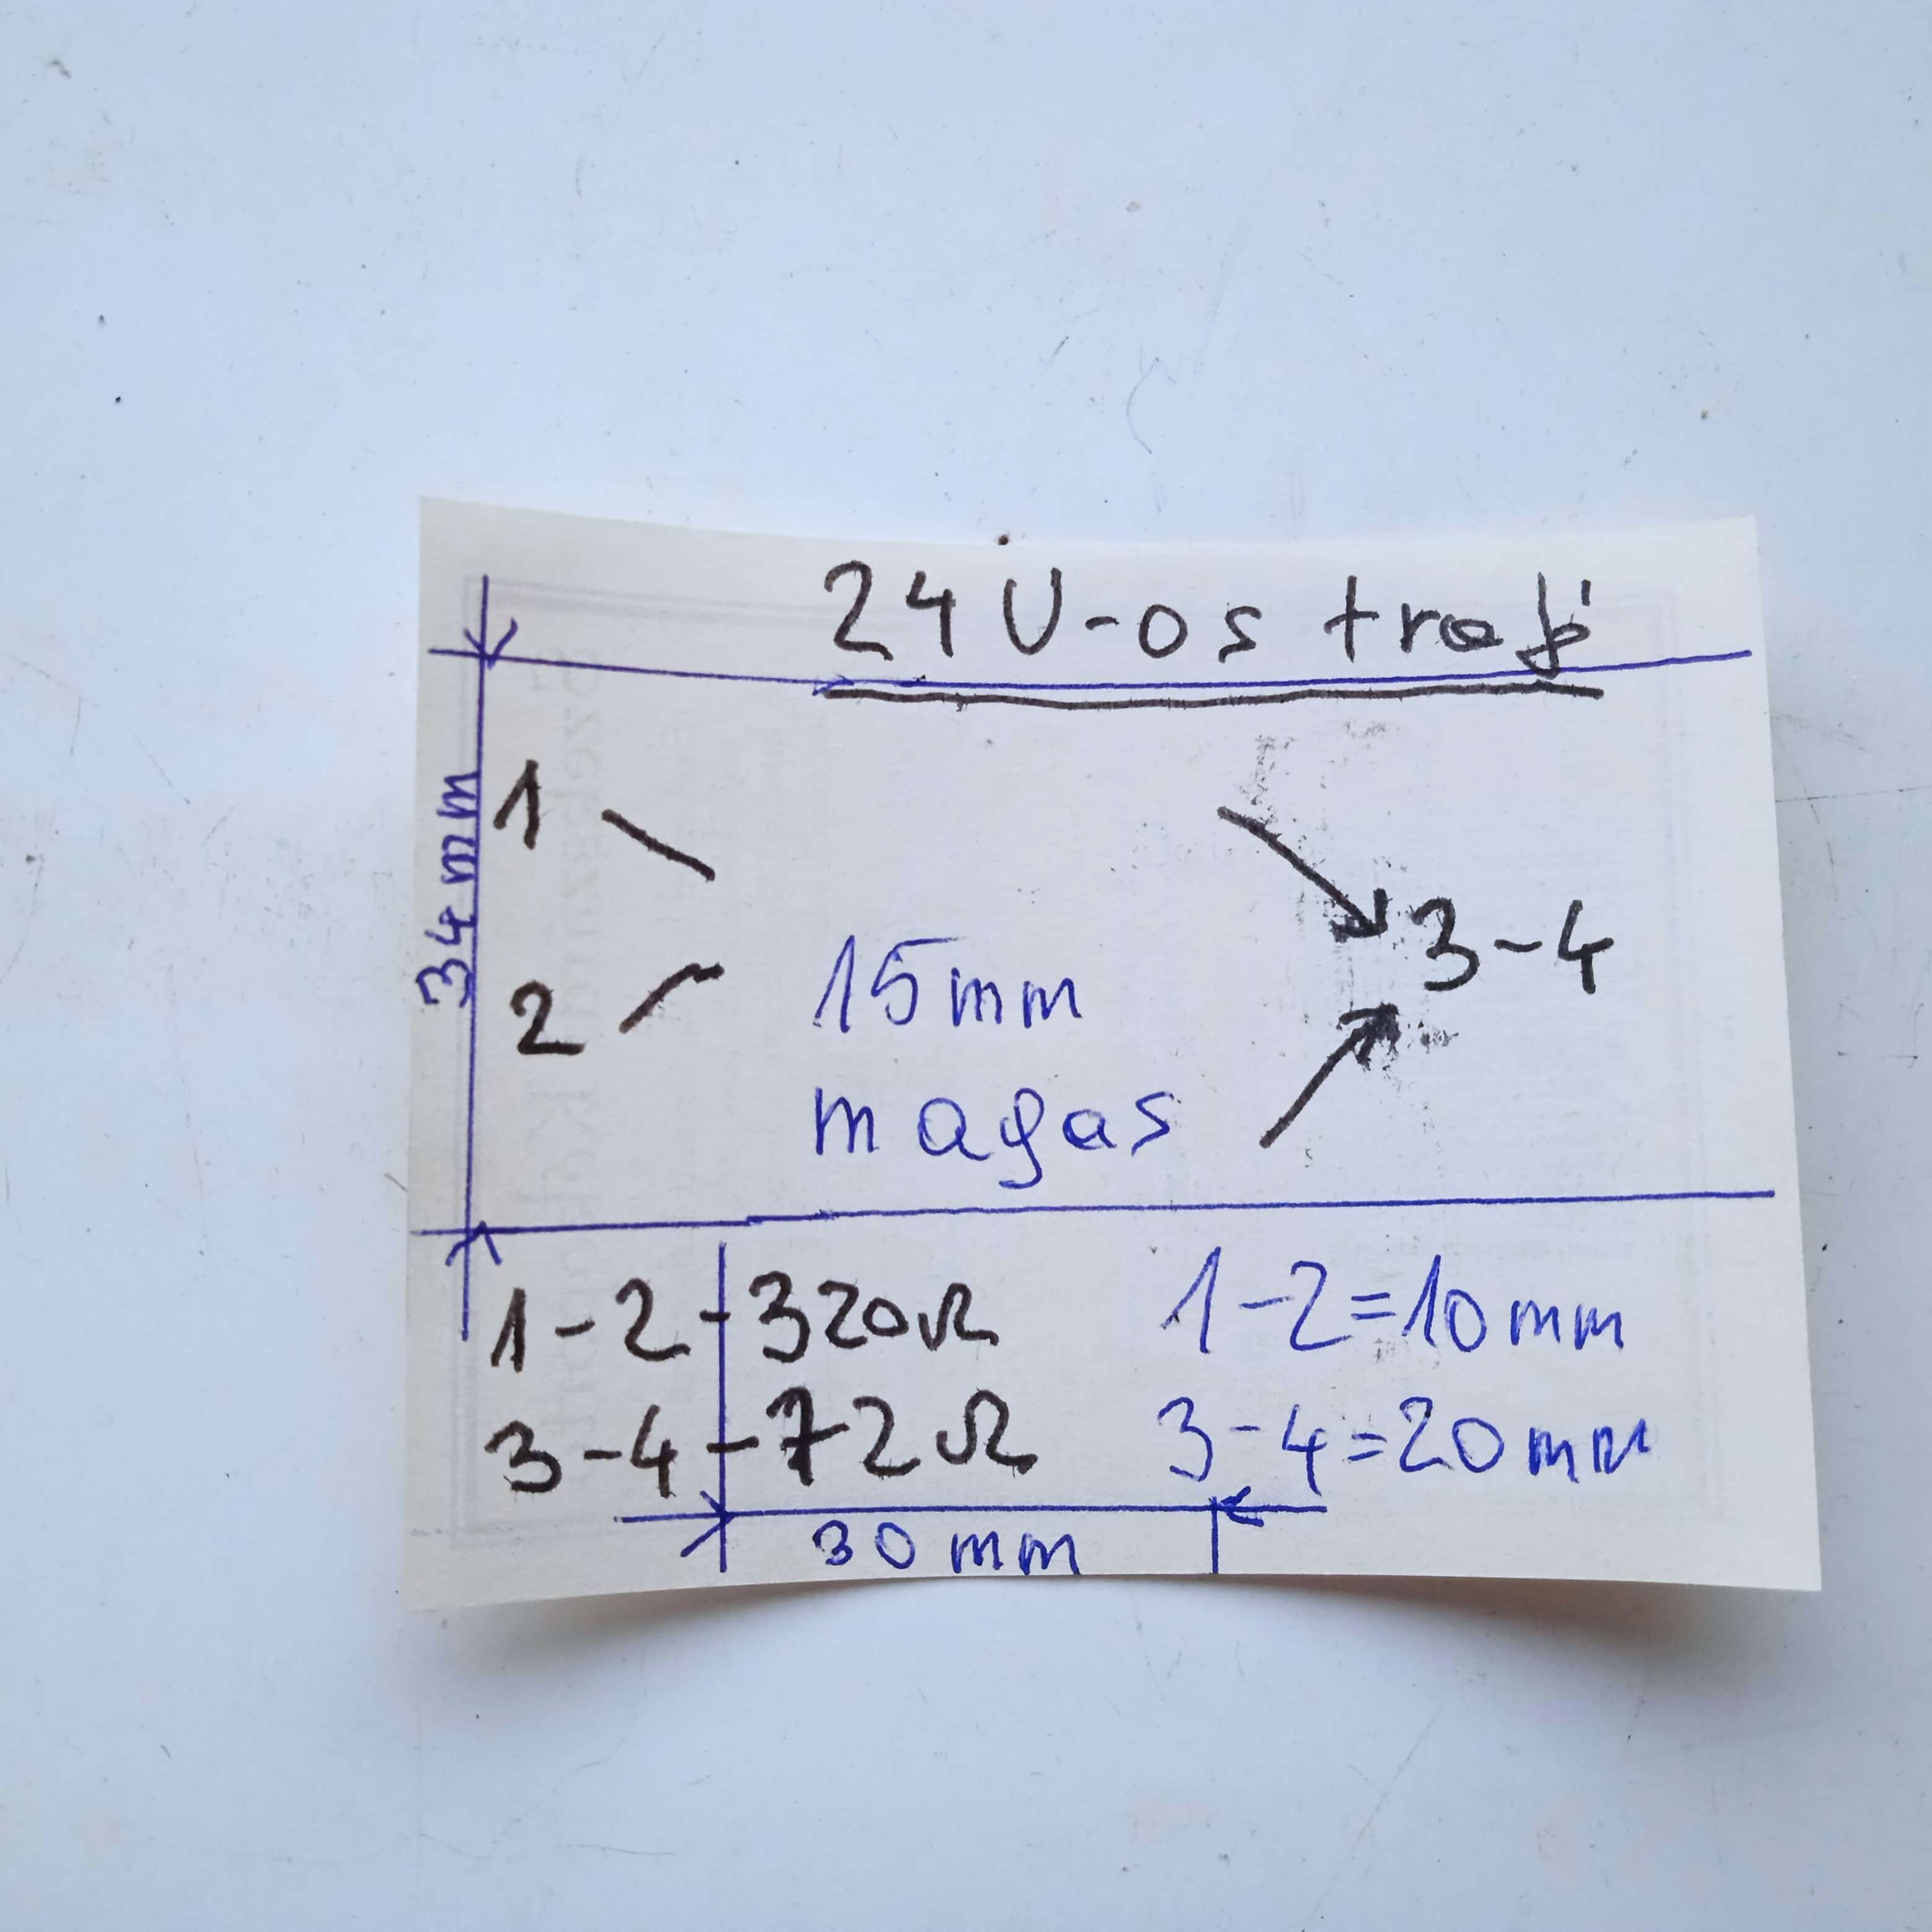 24 U-os trafó
34 mm
1
2
3-4
15mm
magas
1-2-320Ω
3-4-72Ω
1-2=10mm
3-4=20mm
30mm